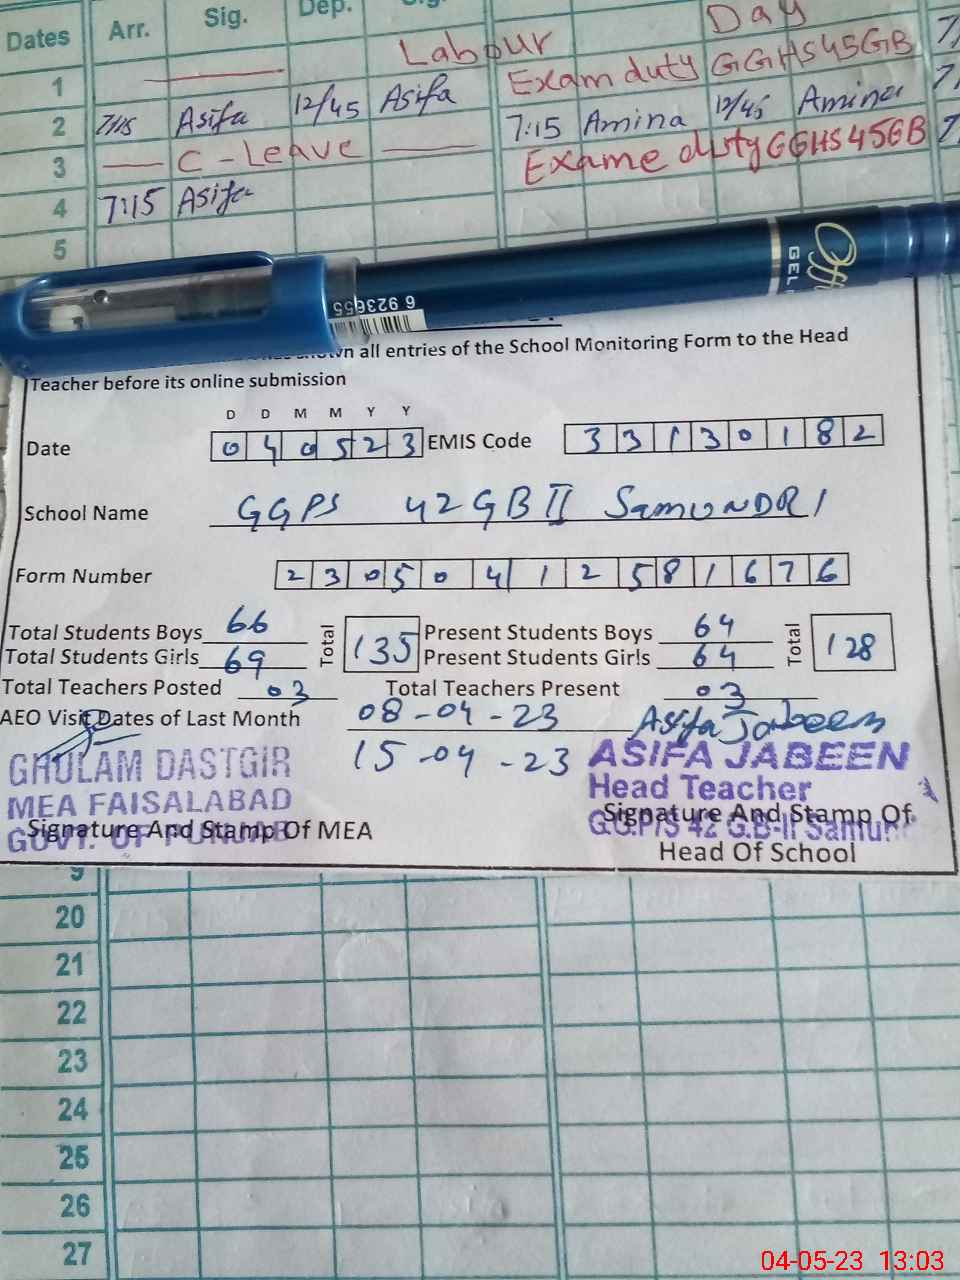 Dates Arr. Sig. Dep. Sig.
Labour Day
1 Exam duty GGHS45GB
2 7/15 Asifa 12/45 Asifa 7:15 Amina 12/45 Amina
3 C-Leave Exame duty GGHS45GB
4 7:15 Asifa
5
GEL
6 923655
all entries of the School Monitoring Form to the Head
Teacher before its online submission
D D M M Y Y
Date 040523 EMIS Code 33130182
School Name GGPS 42GB II SamuNDRI
Form Number 23050412581676
Total Students Boys 66 Total 135 Present Students Boys 64 Total 128
Total Students Girls 69 Present Students Girls 64
Total Teachers Posted 03 Total Teachers Present 03
AEO Visit Dates of Last Month 08-04-23 Asifa Jabeen
15-04-23
GHULAM DASTGIR ASIFA JABEEN
MEA FAISALABAD Head Teacher
GOVT. OF PUNJAB G.G.P/S 42 G.B-II
Signature And Stamp Of MEA Signature And Stamp Of
Head Of School
20
21
22
23
24
25
26
27
04-05-23 13:03